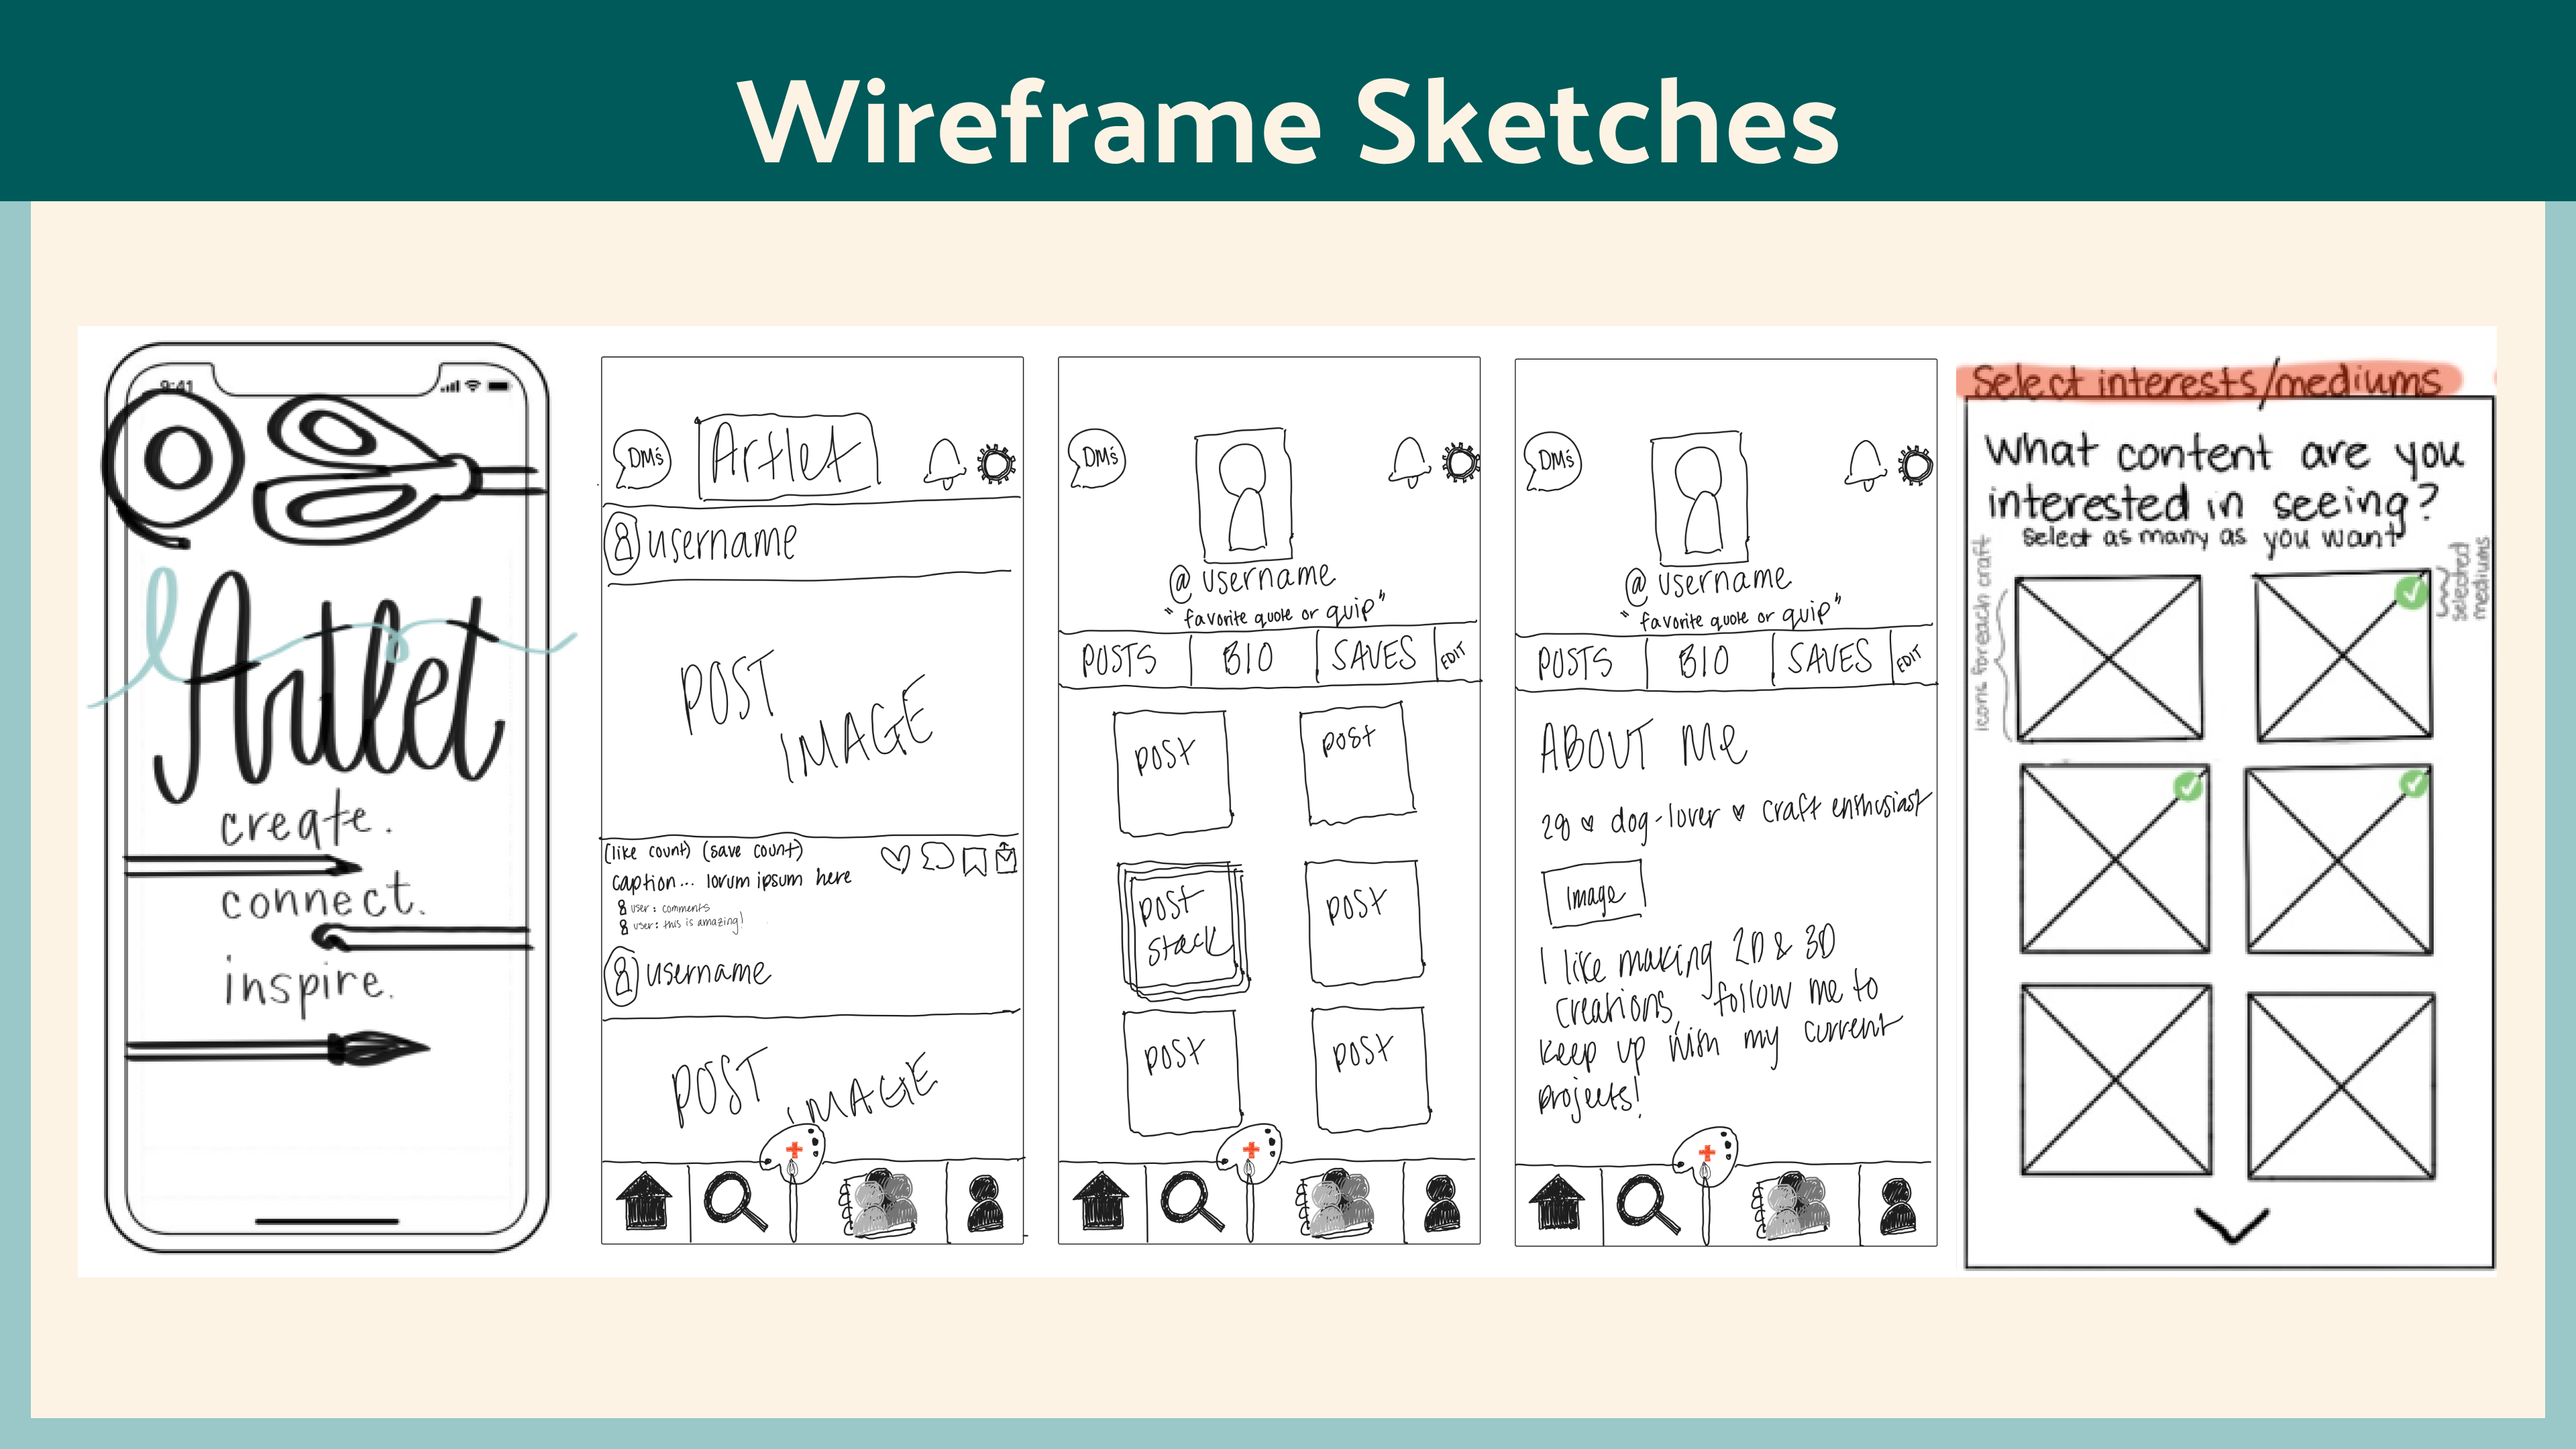 Wireframe Sketches
9:41
Artlet
create.
connect.
inspire.
DM's
Artlet
username
POST
IMAGE
(like count) (save count)
caption... lorum ipsum here
user: comments
user: this is amazing!
username
POST
IMAGE
DM's
@username
"favorite quote or quip"
POSTS BIO SAVES EDIT
post post
post
stack
post
post post
DM's
@username
"favorite quote or quip"
POSTS BIO SAVES EDIT
ABOUT Me
29 ♥ dog-lover ♥ craft enthusiast
Image
I like making 2D & 3D
creations, follow me to
keep up with my current
projects!
Select interests/mediums
What content are you
interested in seeing?
select as many as you want
icons for each craft
selected
mediums